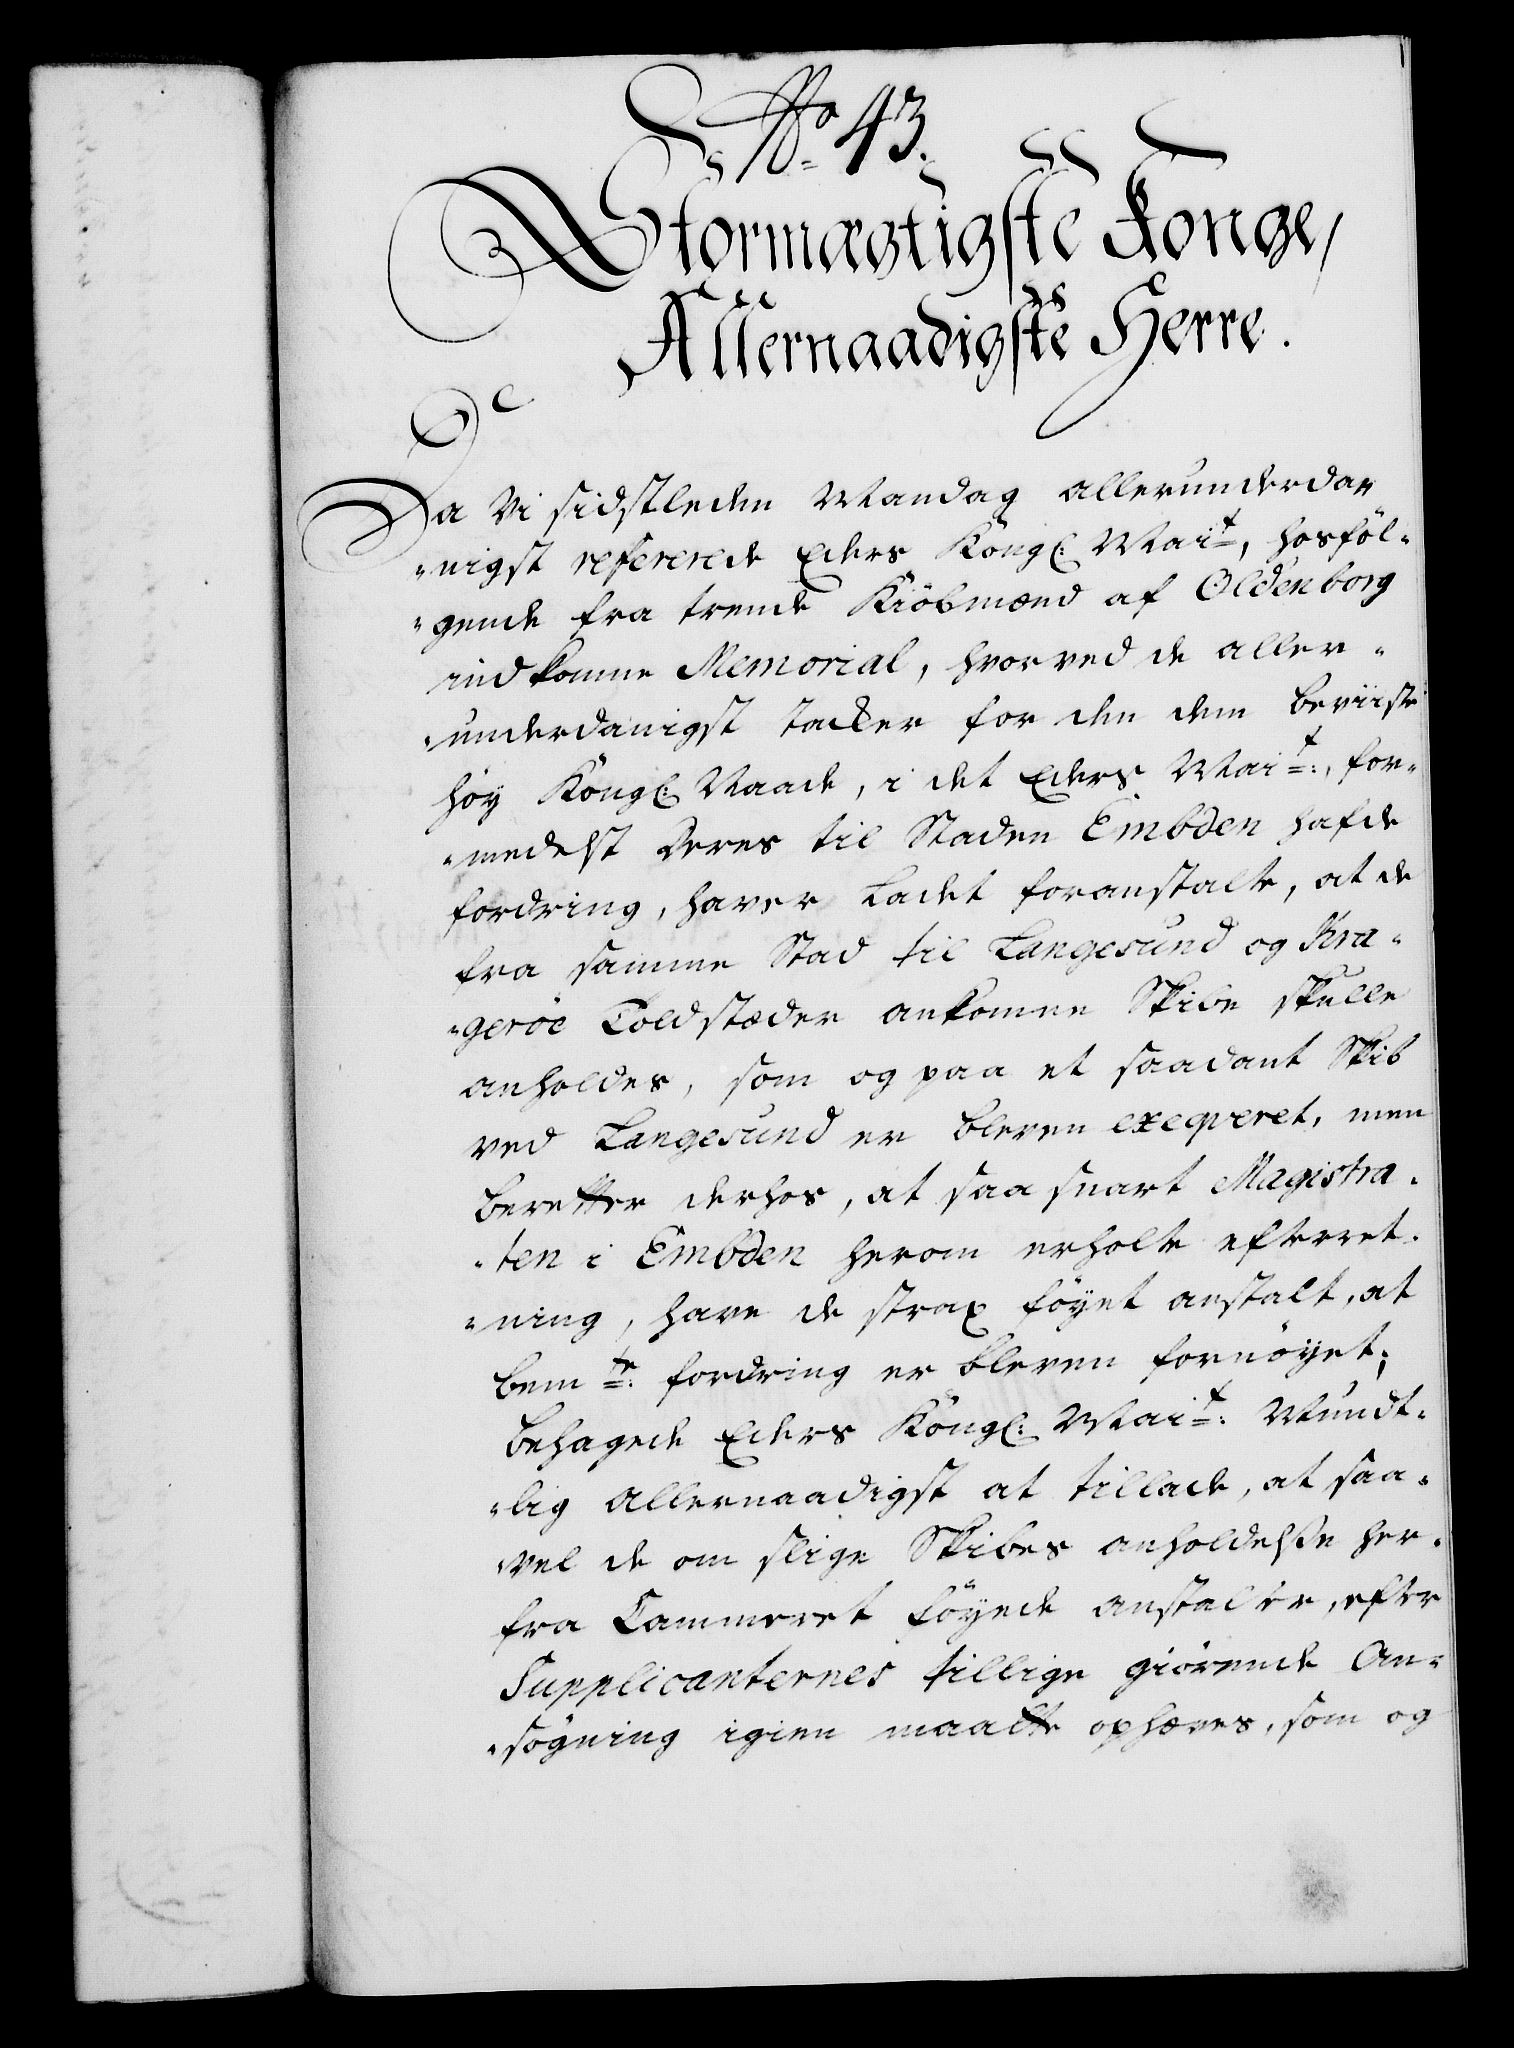 No 43.
Stormægtigste Konge,
Allernaadigste Herre.
Da Vi sidstleden Mandag allerunderda-
nigst refererede Eders Kongl: Mait, hosföl-
gende fra trende Kiöbmænd af Oldenborg
indkomne Memorial, hvorved de aller-
underdanigst tacker for den dem beviiste
höy Kongl: Naade, i det Eders Mait:, for-
medelst deres til Staden Embden hafde
fordring, haver ladet foranstalte, at de
fra samme Stad til Langesund og Kra-
geröe Toldstæder ankomne Skibe skulle
anholdes, som og paa et saadant Skib
ved Langesund er bleven exeqveret, men
beretter derhos, at saa snart Magistra-
ten i Embden herom erholte efterret-
ning, have de strax föyet anstalt, at
bemte: fordring er bleven fornöyet;
behagede Eders Kongl: Mait: Mundt-
lig allernaadigst at tillade, at saa-
vel de om slige Skibes anholdelse her-
fra Cammeret föyede anstalter, efter
Supplicanternes tillige giörende An-
sögning igien maatte ophæves, som og